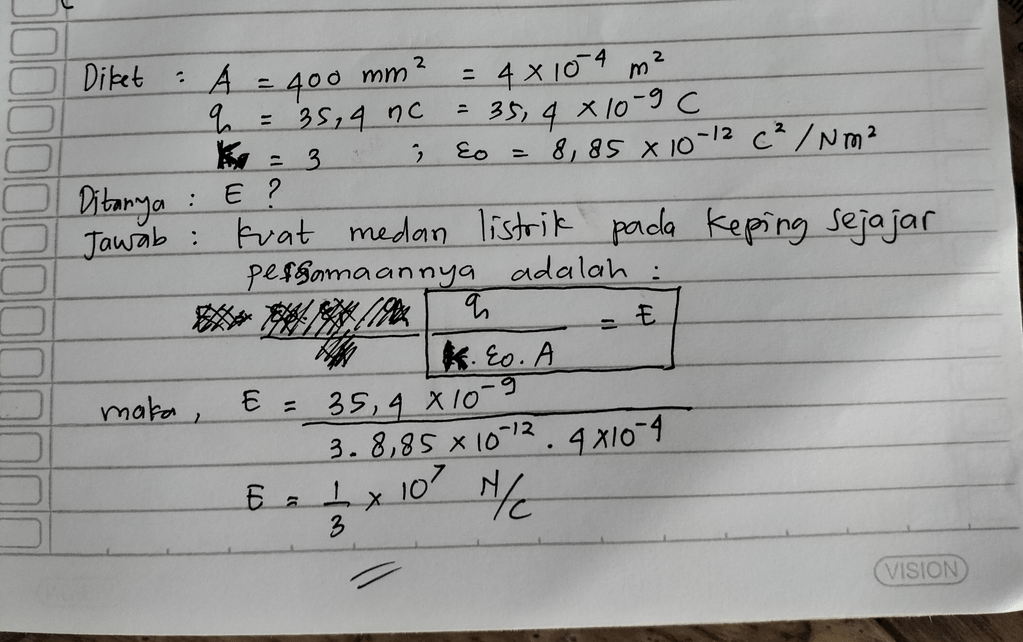 Diket : A = 400 mm² = 4 × 10⁻⁴ m²
q = 35,4 nC = 35,4 × 10⁻⁹ C
K = 3 ; εo = 8,85 × 10⁻¹² C² / Nm²
Ditanya : E ?
Jawab : Kuat medan listrik pada keping sejajar
persamaannya adalah :
q / K . εo . A = E
maka, E = 35,4 × 10⁻⁹
3 . 8,85 × 10⁻¹² . 4 × 10⁻⁴
E = 1/3 × 10⁷ N/C
VISION